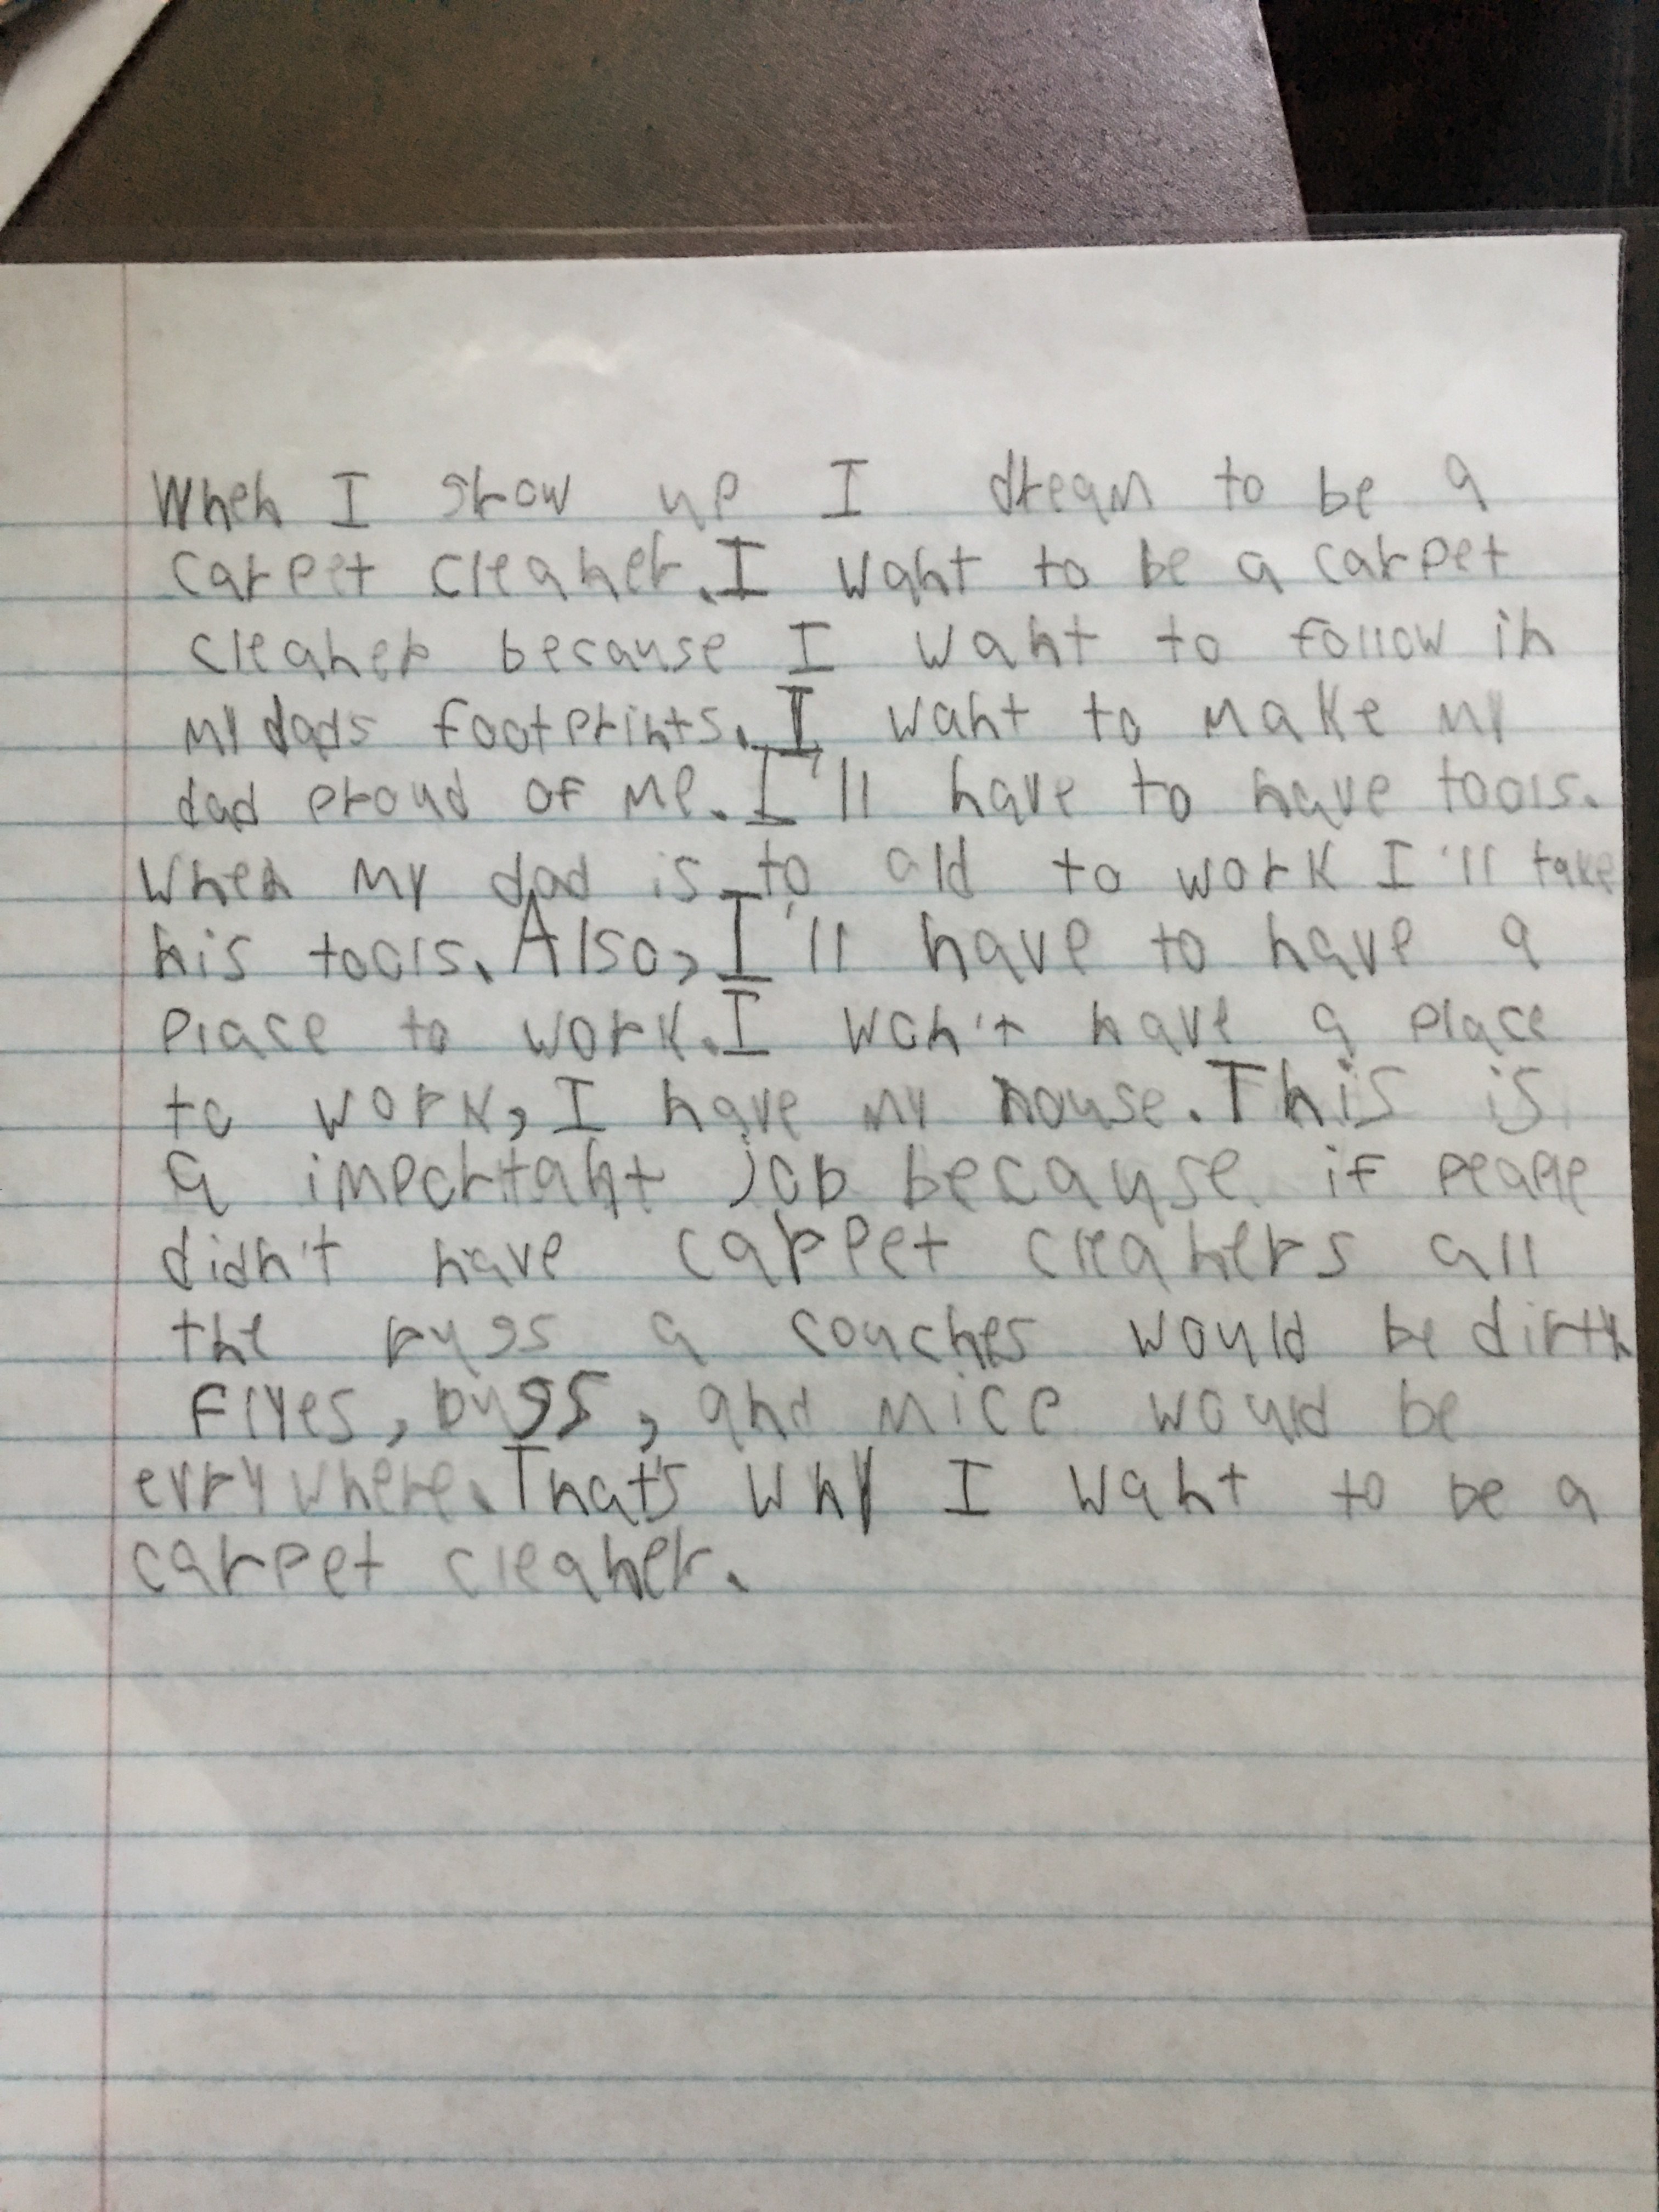 When I grow up I dream to be a
carpet cleaner. I want to be a carpet
cleaner because I want to follow in
my dads footprints. I want to make my
dad proud of me. I'll have to have tools.
When my dad is to old to work I'll take
his tools. Also, I'll have to have a
place to work. I won't have a place
to work, I have my house. This is
a important job because if people
didn't have carpet cleaners all
the rugs a couches would be dirty
flyes, bugs, and mice would be
evrywhere. That's why I want to be a
carpet cleaner.